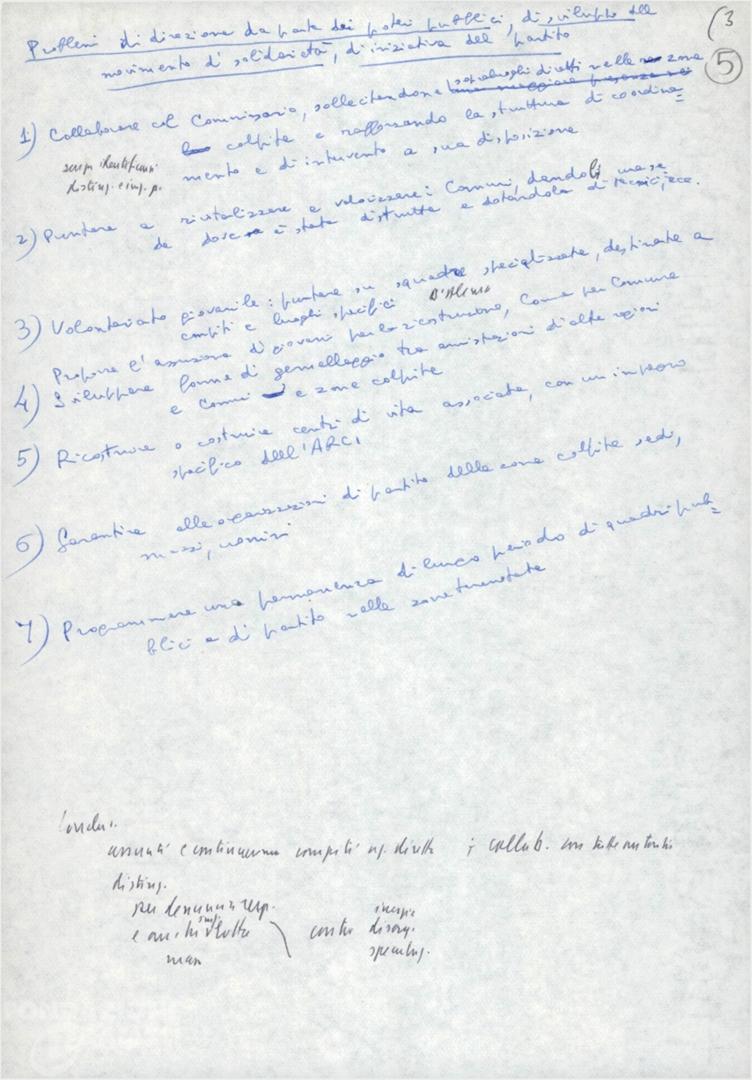 (3
5
Problemi di direzione da parte dei poteri pubblici, di sviluppo del
movimento di solidarietà, di iniziativa del partito
1) Collaborare col Commissario, sollecitandone sopraluoghi diretti nelle zone
una maggiore presenza nei
colpite e rafforzando la struttura di coordina=
mento e di intervento a sua disposizione
disting. e imp. p.
2) Puntare a rivitalizzare e valorizzare i Comuni, dandoli una sede
dove è stata distrutta e dotandola di tecnici, ecc.
3) Volontariato giovanile: puntare su squadre specializzate, destinate a
compiti e luoghi specifici
Proporre l'assunzione di giovani per la ricostruzione, Comune per Comune
4) Sviluppare forme di gemellaggio tra amministrazioni di altre regioni
e Comuni e zone colpite
5) Ricostruire o costruire centri di vita associata, con un impegno
specifico dell'ARCI
6) Garantire alle organizzazioni di partito delle zone colpite sedi,
mezzi, uomini
7) Programmare una permanenza di lungo periodo di quadri pub=
blici e di partito nelle zone terremotate
Conclus.
assunti e continueremo compiti dirette ; collab. con tutte autorità
disting.
per denuncia resp.
e anche lotte
contro
inerzie
disorg.
speculaz.